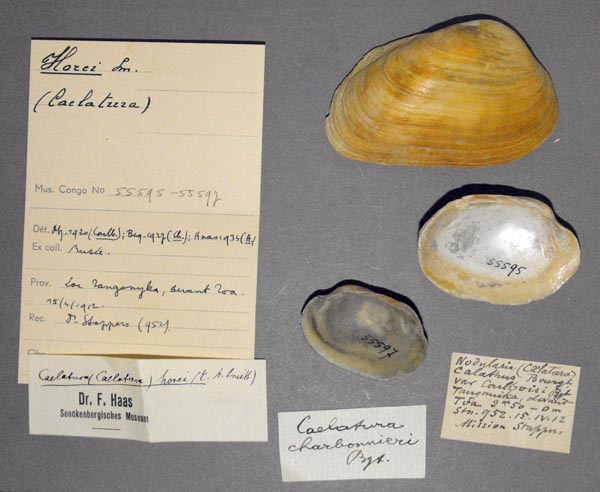 Horei Sm.
(Caelatura)
Mus. Congo No 55595-55597
Dét. 1920 (Coulb.); Beq. 1927 (Ch.); Haas 1934 (H.)
Ex coll. Musée.
Prov. Lac Tanganyka, devant Toa
15/4/1912
Rec. Dr Stappers (952).
Obs
Caelatura (Caelatura) horei (E. A. Smith)
Dr. F. Haas
Senckenbergisches Museum
55595
55597
Caelatura
charbonnieri
Bgt.
Nodularia (Caelatura)
calathus Bourgt
var Coulboisi Bgt
Tanganika devant
Toa 2m50-0m
Stn. 952. 15. IV. 12
Mission Stappers